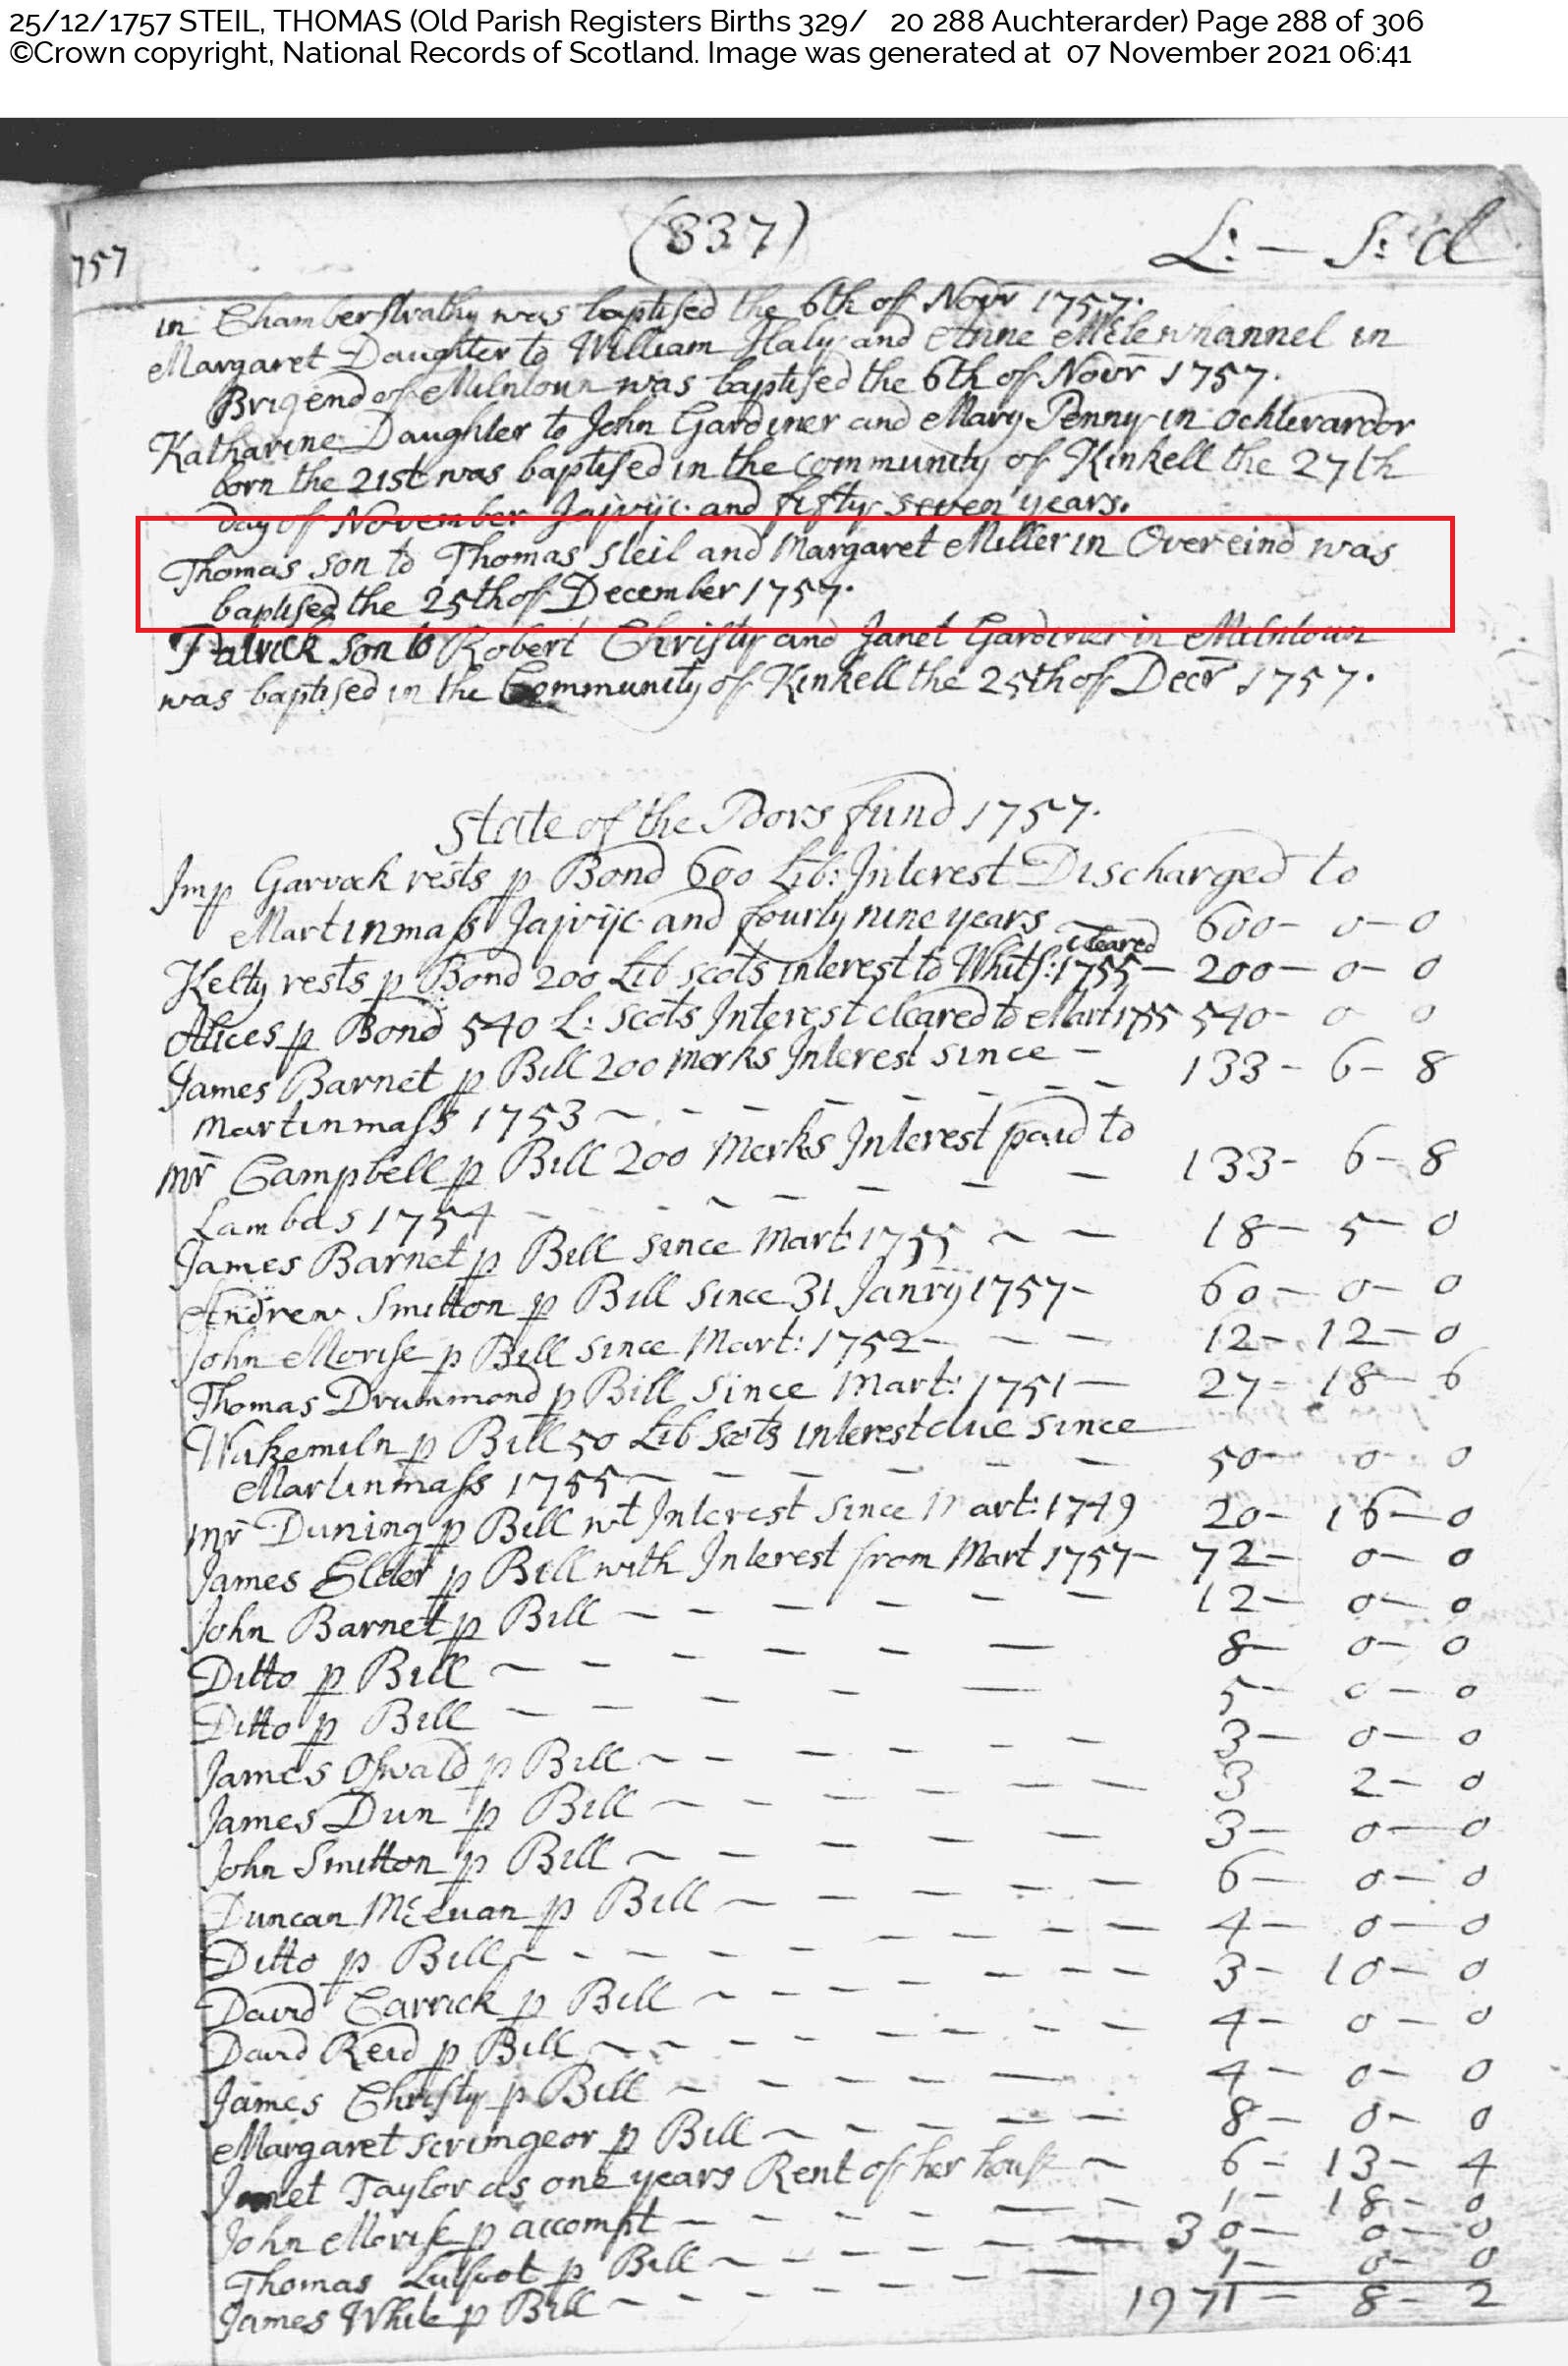 25/12/1757 STEIL, THOMAS (Old Parish Registers Births 329/ 20 288 Auchterarder) Page 288 of 306
©Crown copyright, National Records of Scotland. Image was generated at 07 November 2021 06:41
(337) L: — S: d
757
in Chamberstrathy was baptised the 6th of Novr 1757.
Margaret Daughter to William Haly and Anne in
Brigend of Milntoun was baptised the 6th of Novr 1757.
Katharine Daughter to John Gardiner and Mary Penny in Ochterardor
born the 21st was baptised in the Community of Kinkell the 27th
day of November Jajvijc and fifty seven years.
Thomas son to Thomas Steil and Margaret Miller in Overeind was
baptised the 25th of December 1757.
Patrick son to Robert Christy and Janet Gardiner in Milntown
was baptised in the Community of Kinkell the 25th of Decr 1757.
State of the Poors fund 1757.
Imp Garvock rests p Bond 600 Lib: Interest Discharged to
Martinmass Jajvijc and fourty nine years — 600 - 0 - 0
cleared
Kelty rests p Bond 200 Lib scots interest to Whits: 1755 — 200 — 0 - 0
p Bond 540 L: Scots Interest cleared to Mart 1755 540 - 0 0
James Barnet p Bill 200 merks Interest since — 133 - 6 - 8
Martinmass 1753 ~ - - - - - -
Mr Campbell p Bill 200 Merks Interest paid to 133 - 6 - 8
Lambas 1754 - - - - - - -
James Barnet p Bill since Mart: 1755 ~ — 18 - 5 - 0
Andrew Smitton p Bill since 31 Janry 1757 - 60 — 0 - 0
John Morise p Bill since Mart: 1752 - — — 12 - 12 - 0
Thomas Drummond p Bill since Mart: 1751 — 27 - 18 - 6
p Bill 50 Lib Scots interest due since
Martinmass 1755 ~ - - - - - 50 - 0 - 0
Mr Duning p Bill wt Interest since Mart: 1749 20 - 16 — 0
James Elder p Bill with Interest from Mart 1757 - 72 - 0 - 0
John Barnet p Bill — - - - - - 12 - 0 - 0
Ditto p Bill ~ - - - - — 8 - 0 - 0
Ditto p Bill — - - - — 5 - 0 - 0
James Oswald p Bill ~ - - - - - 3 — 0 - 0
James Dun p Bill ~ - - - - — 3 2 - 0
John Smitton p Bill ~ - - - - — 3 — 0 — 0
Duncan McEuan p Bill ~ - - - - 6 — 0 - 0
Ditto p Bill ~ - - - - - - 4 — 0 — 0
David Carrick p Bill ~ - - - - - 3 - 10 - 0
David Reid p Bill ~ - - - - - - 4 - 0 - 0
James Christy p Bill ~ - - - - — 4 - 0 - 0
Margaret Scrimgeor p Bill ~ - - - — 8 - 0 - 0
Janet Taylor as one years Rent of her house ~ 6 - 13 - 4
John Morise p accompt — - - - - — 1 - 18 - 0
Thomas p Bill ~ - - - - — 30 — 0 - 0
James White p Bill ~ - - - - — 1 - 0 - 0
1971 — 8 - 2